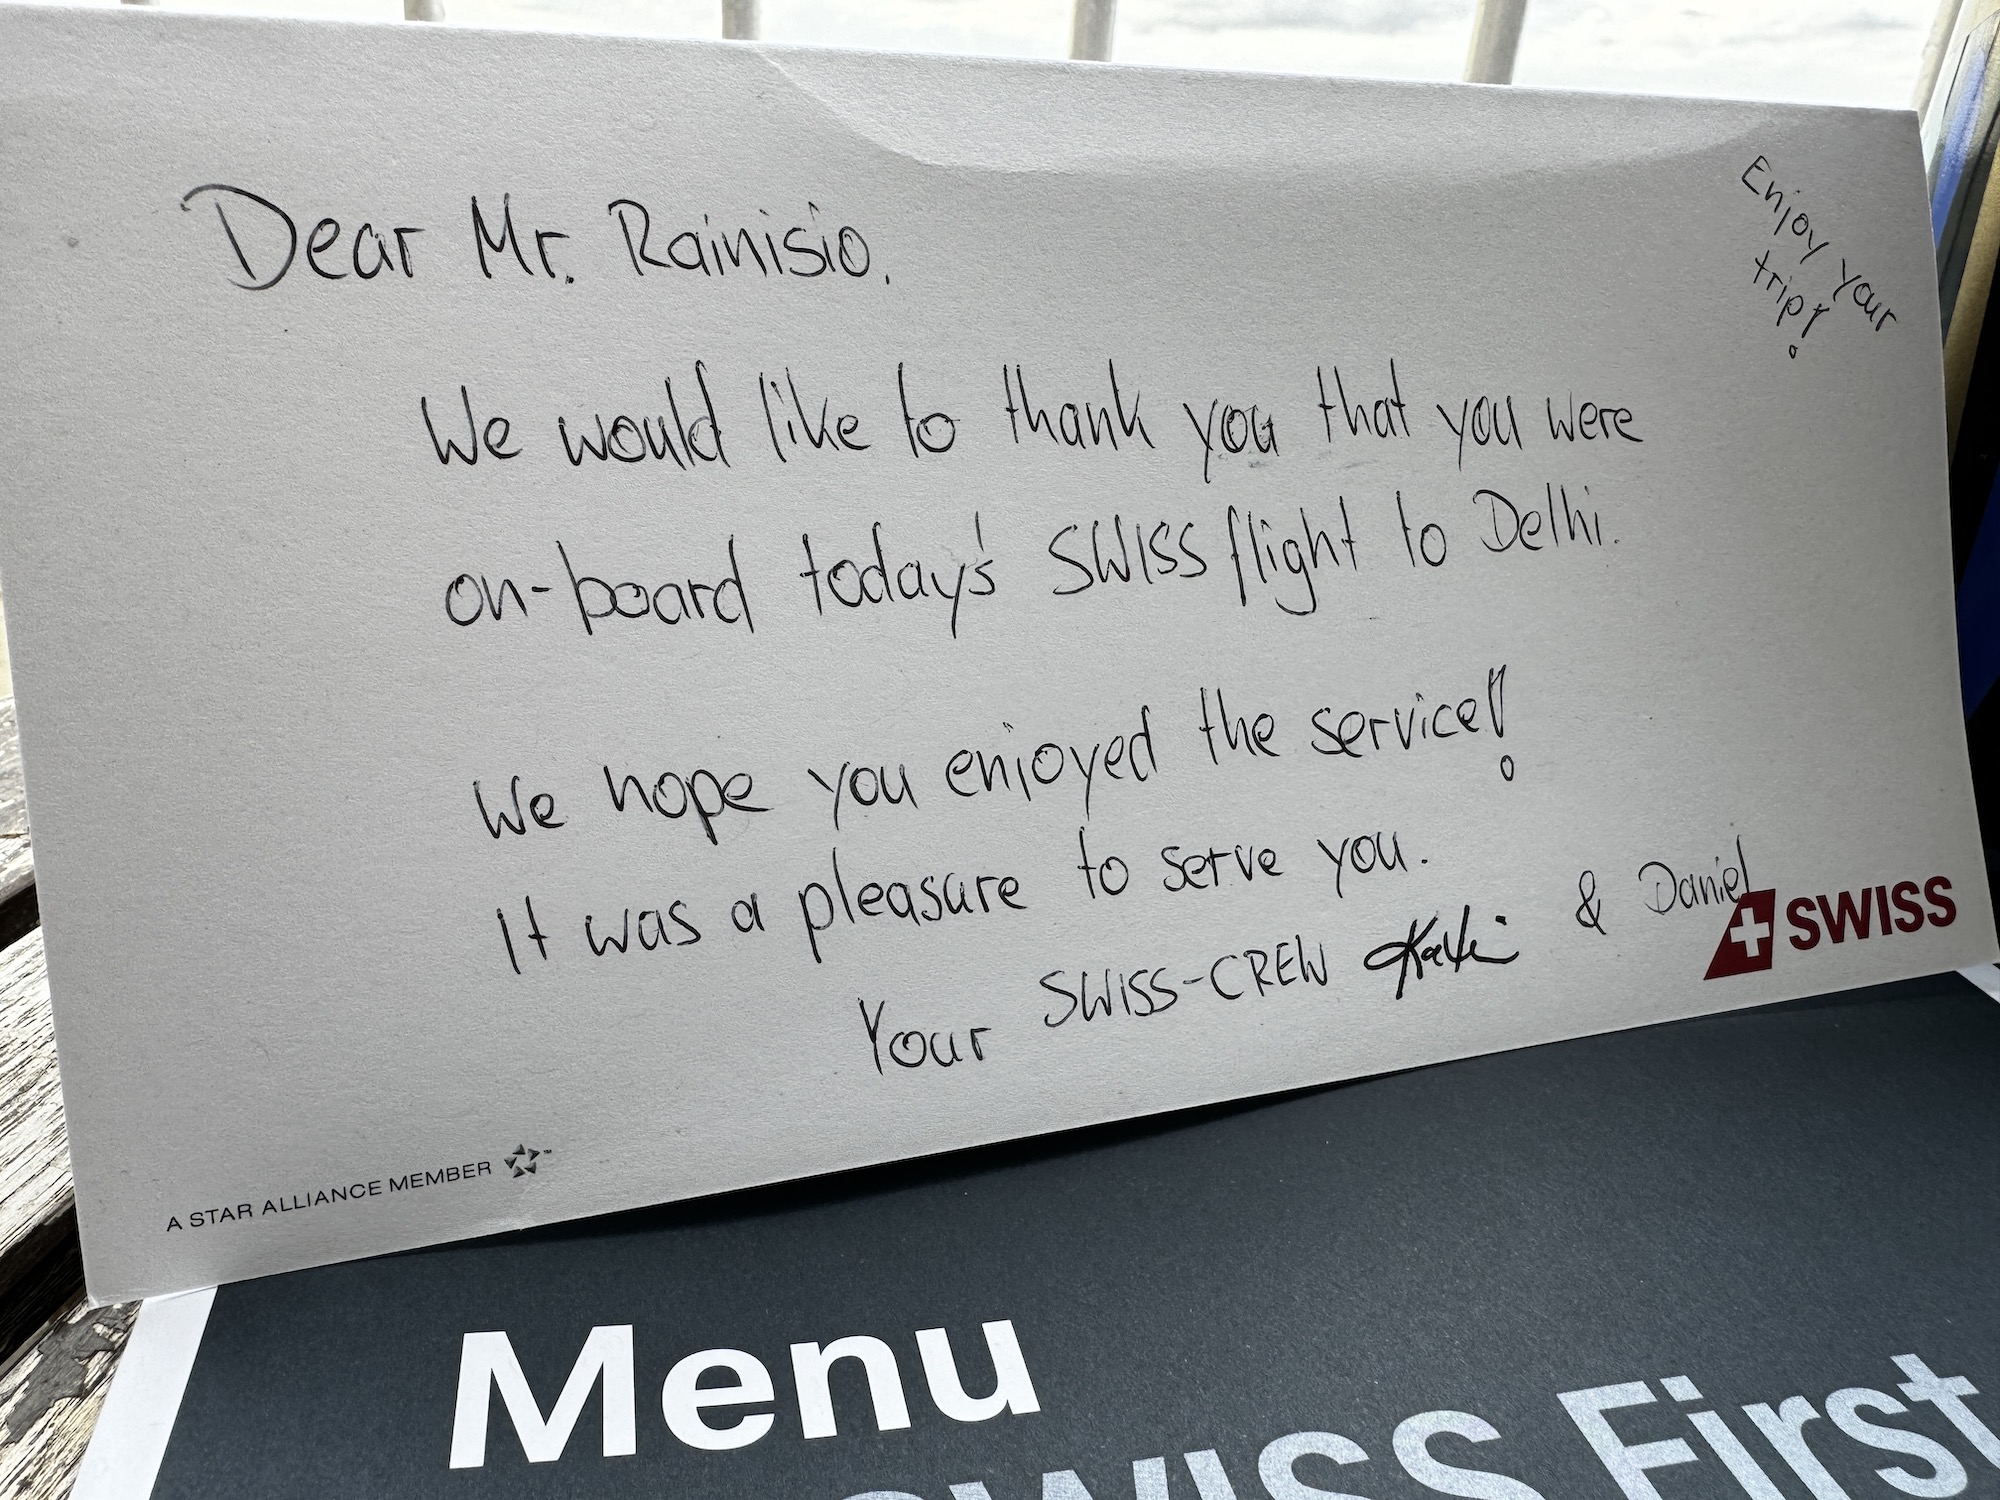 Dear Mr. Rainisio,
Enjoy your
trip!
We would like to thank you that you were
on-board today's SWISS flight to Delhi.
We hope you enjoyed the service!
It was a pleasure to serve you.
Your SWISS-CREW & Daniel
SWISS
A STAR ALLIANCE MEMBER ™
Menu
SWISS First